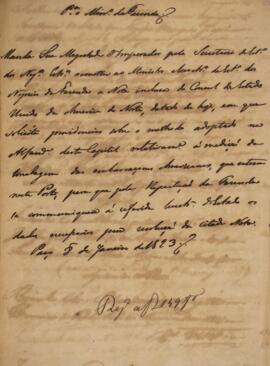 Pª o Minº da Fazenda
Manda Sua Magestade o Imperador pela Secretaria de Estº
dos Negº Estrº remetter ao Ministro Secretº de Estº dos
Negocios da Fazenda a Nota inclusa do Consul dos Estados
Unidos da America do Norte, datada de hoje, em que
solicita providencias sobre o methodo adoptado na
Alfandª desta Capital relativamente á medição da
tonelagem das embarcaçoens Americanas, que entram
neste Porto, para que pela Repartição da Fazenda
se communique á referida Secretª d'Estado os
dados necessarios para resolução da citada Nota.
Paço 8 de Janeiro de 1823
Regª a f 149